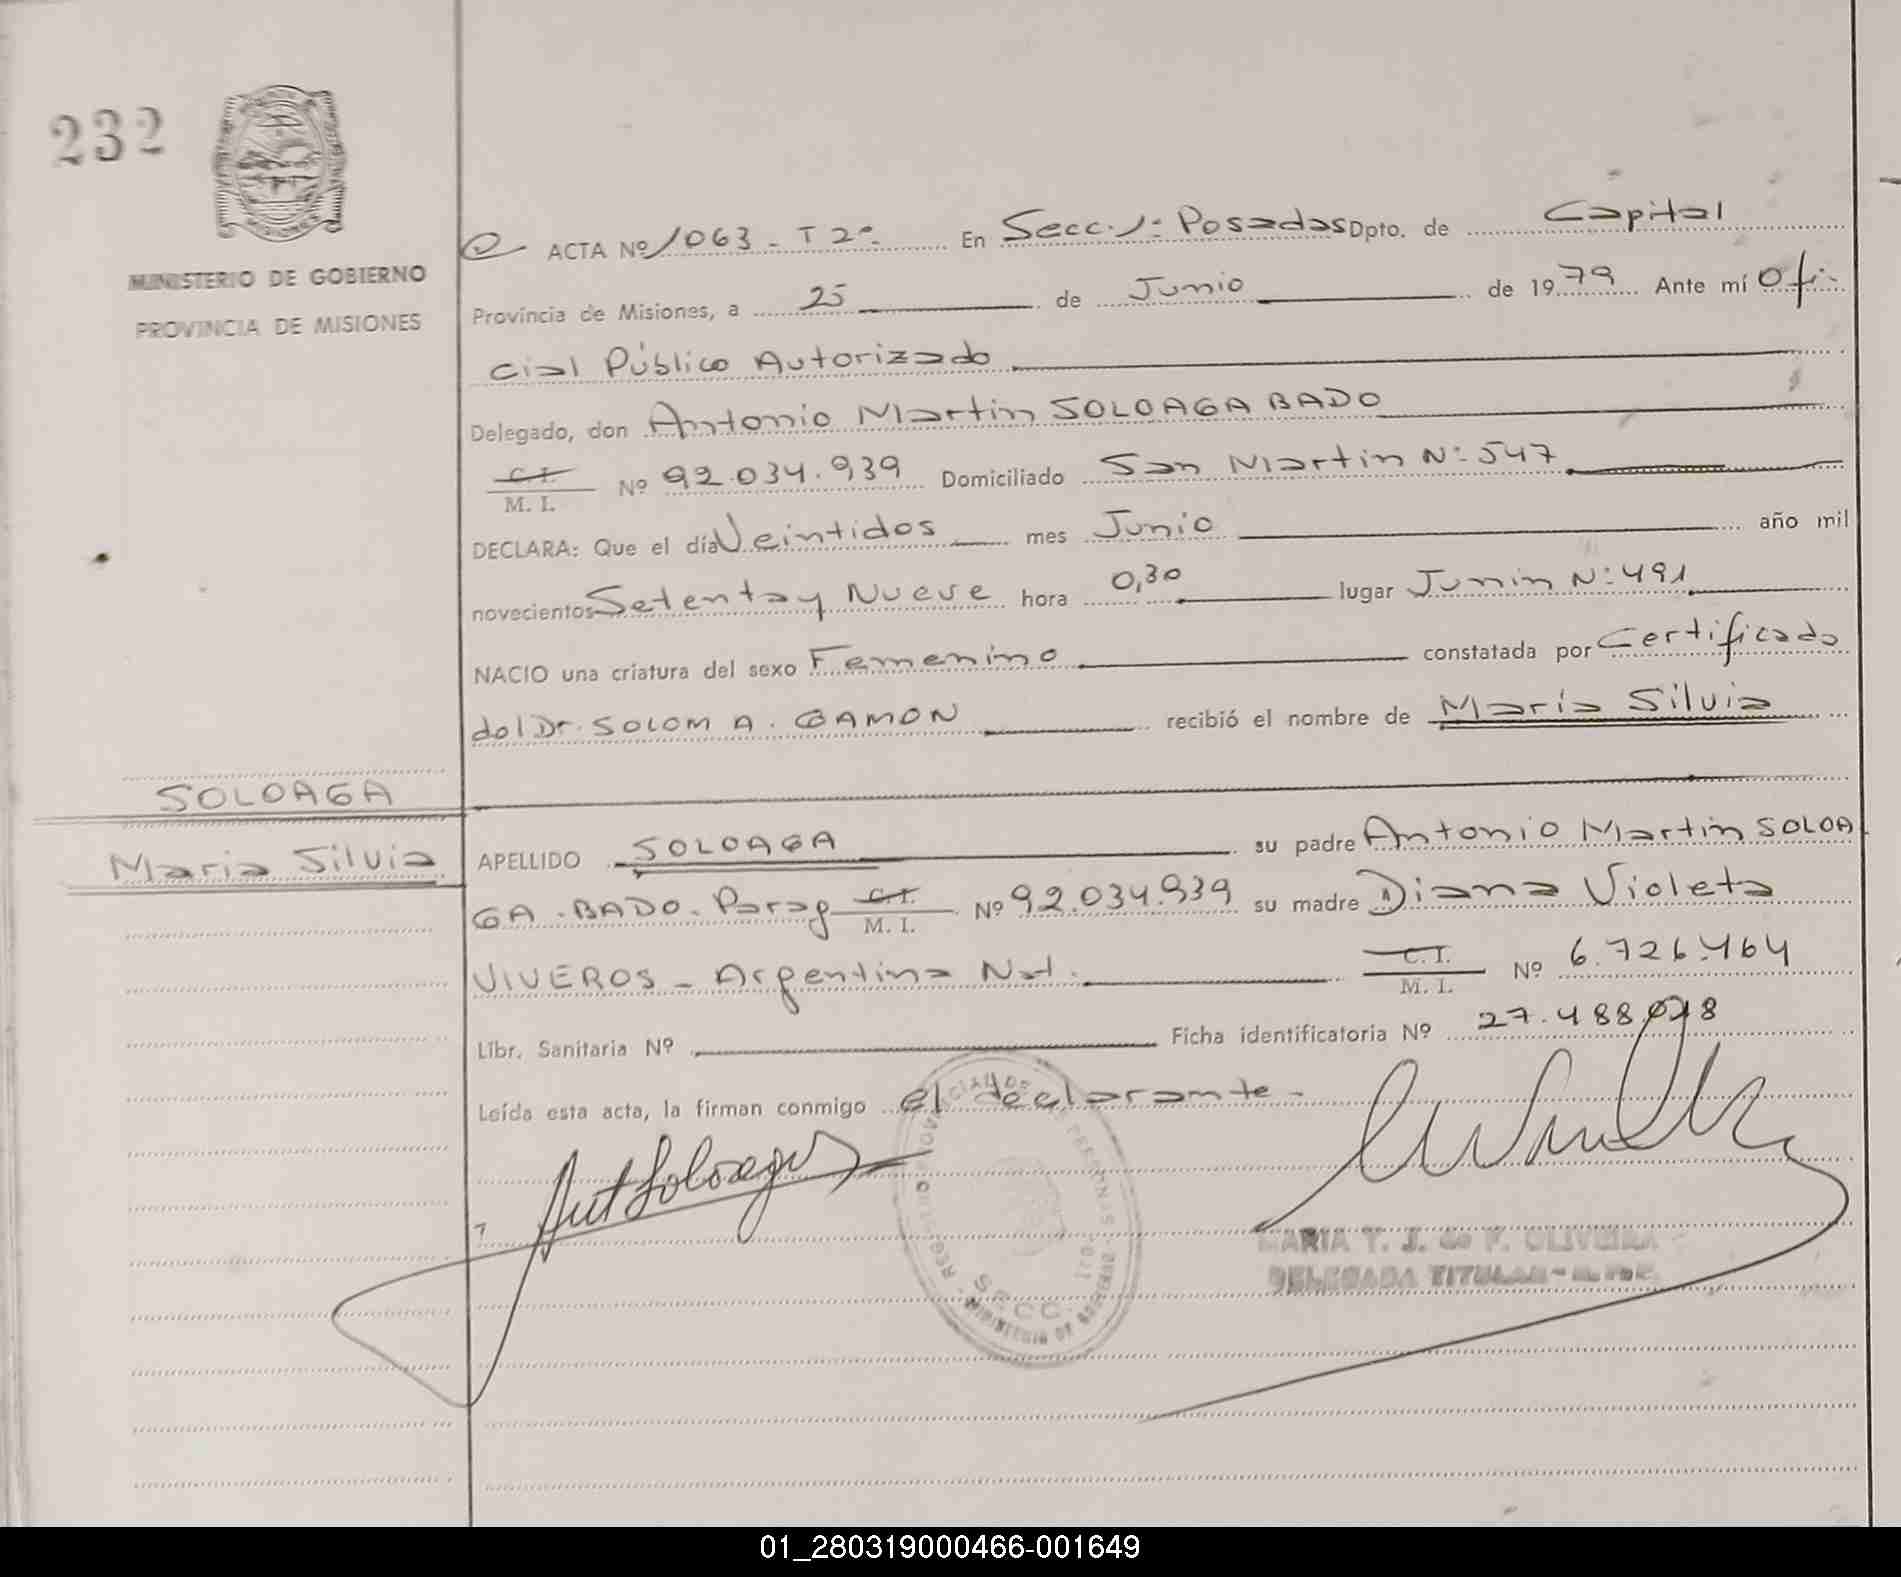 232
MINISTERIO DE GOBIERNO
PROVINCIA DE MISIONES
ACTA Nº 1063 - T 2º. En Secc. 1: Posadas Dpto. de Capital
Provincia de Misiones, a 25 de Junio de 1979 Ante mí Ofi-
cial Público Autorizado
Delegado, don Antonio Martin SOLOAGA BADO
C.I.
M. I. Nº 92.034.939 Domiciliado San Martin Nº 547
DECLARA: Que el día Veintidos mes Junio año mil
novecientos Setenta y Nueve hora 0,30 lugar Junin Nº 491
NACIO una criatura del sexo Femenino constatada por Certificado
del Dr. SOLOM A. GAMON recibió el nombre de María Silvia
SOLOAGA
Maria Silvia
APELLIDO SOLOAGA su padre Antonio Martin SOLOA
GA - BADO - Parag C.I. M. I. Nº 92.034.939 su madre Diana Violeta
VIVEROS - Argentina Nat. C.I. M. I. Nº 6.726.464
Libr. Sanitaria Nº Ficha identificatoria Nº 27.488.018
Leída esta acta, la firman conmigo el declarante -
Ant Soloaga
REGISTRO PROVINCIAL DE PERSONAS
SECC.
MINISTERIO DE GOBIERNO
MARIA T. J. de F. OLIVEIRA
DELEGADA TITULAR
01_280319000466-001649